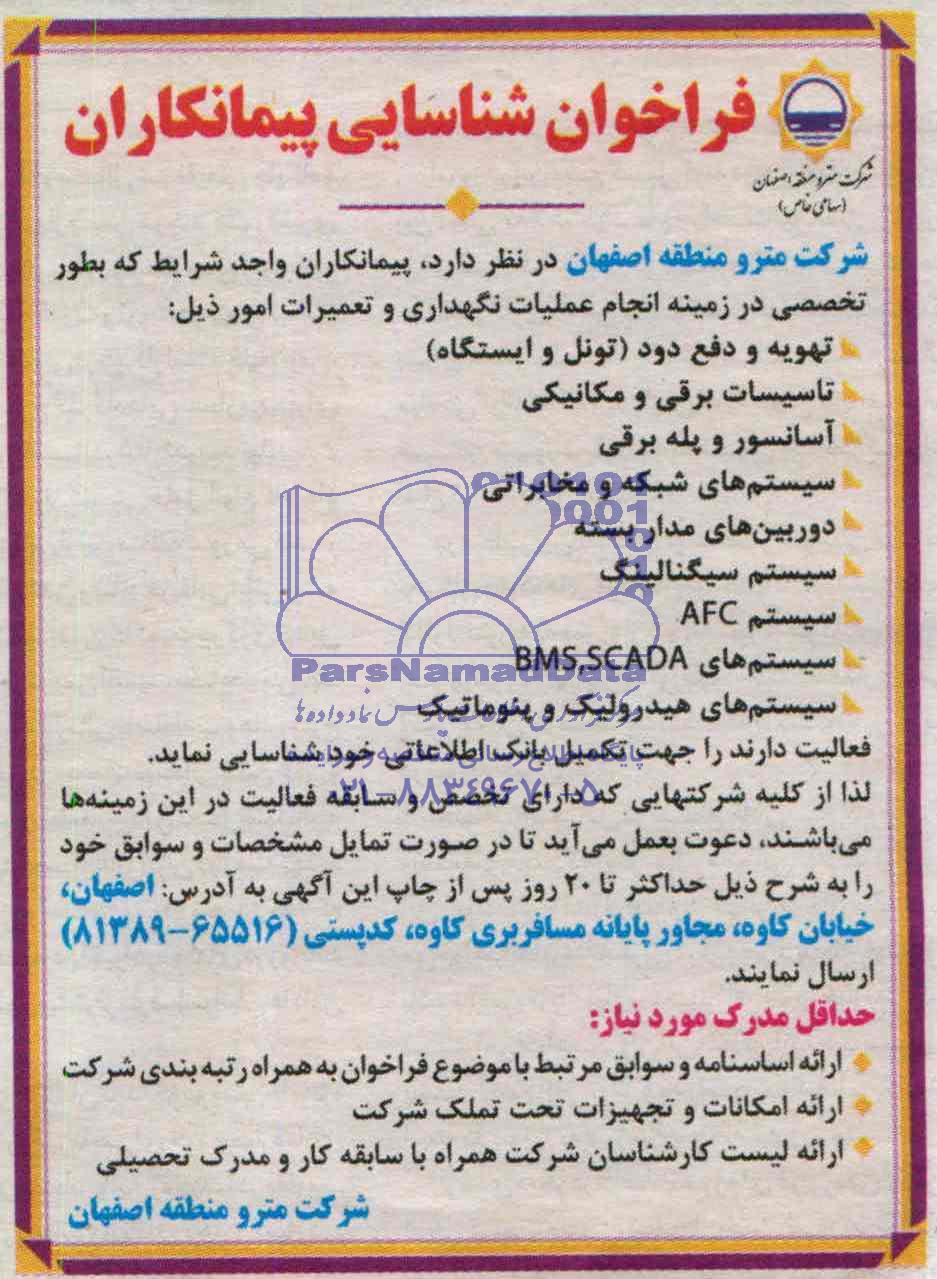 فراخوان شناسایی پیمانکاران
شرکت مترو منطقه اصفهان
(سهامی خاص)
شرکت مترو منطقه اصفهان در نظر دارد، پیمانکاران واجد شرایط که بطور
تخصصی در زمینه انجام عملیات نگهداری و تعمیرات امور ذیل:
تهویه و دفع دود (تونل و ایستگاه)
تاسیسات برقی و مکانیکی
آسانسور و پله برقی
سیستم‌های شبکه و مخابراتی
دوربین‌های مدار بسته
سیستم سیگنالینگ
سیستم AFC
سیستم‌های BMS,SCADA
ParsNamadData
سیستم‌های هیدرولیک و پنوماتیک
فعالیت دارند را جهت تکمیل بانک اطلاعاتی خود شناسایی نماید.
۰۲۱-۸۸۳۴۹۶۷۰-۵
لذا از کلیه شرکتهایی که دارای تخصص و سابقه فعالیت در این زمینه‌ها
می‌باشند، دعوت بعمل می‌آید تا در صورت تمایل مشخصات و سوابق خود
را به شرح ذیل حداکثر تا ۲۰ روز پس از چاپ این آگهی به آدرس: اصفهان،
خیابان کاوه، مجاور پایانه مسافربری کاوه، کدپستی (۶۵۵۱۶-۸۱۳۸۹)
ارسال نمایند.
حداقل مدرک مورد نیاز:
ارائه اساسنامه و سوابق مرتبط با موضوع فراخوان به همراه رتبه بندی شرکت
ارائه امکانات و تجهیزات تحت تملک شرکت
ارائه لیست کارشناسان شرکت همراه با سابقه کار و مدرک تحصیلی
شرکت مترو منطقه اصفهان